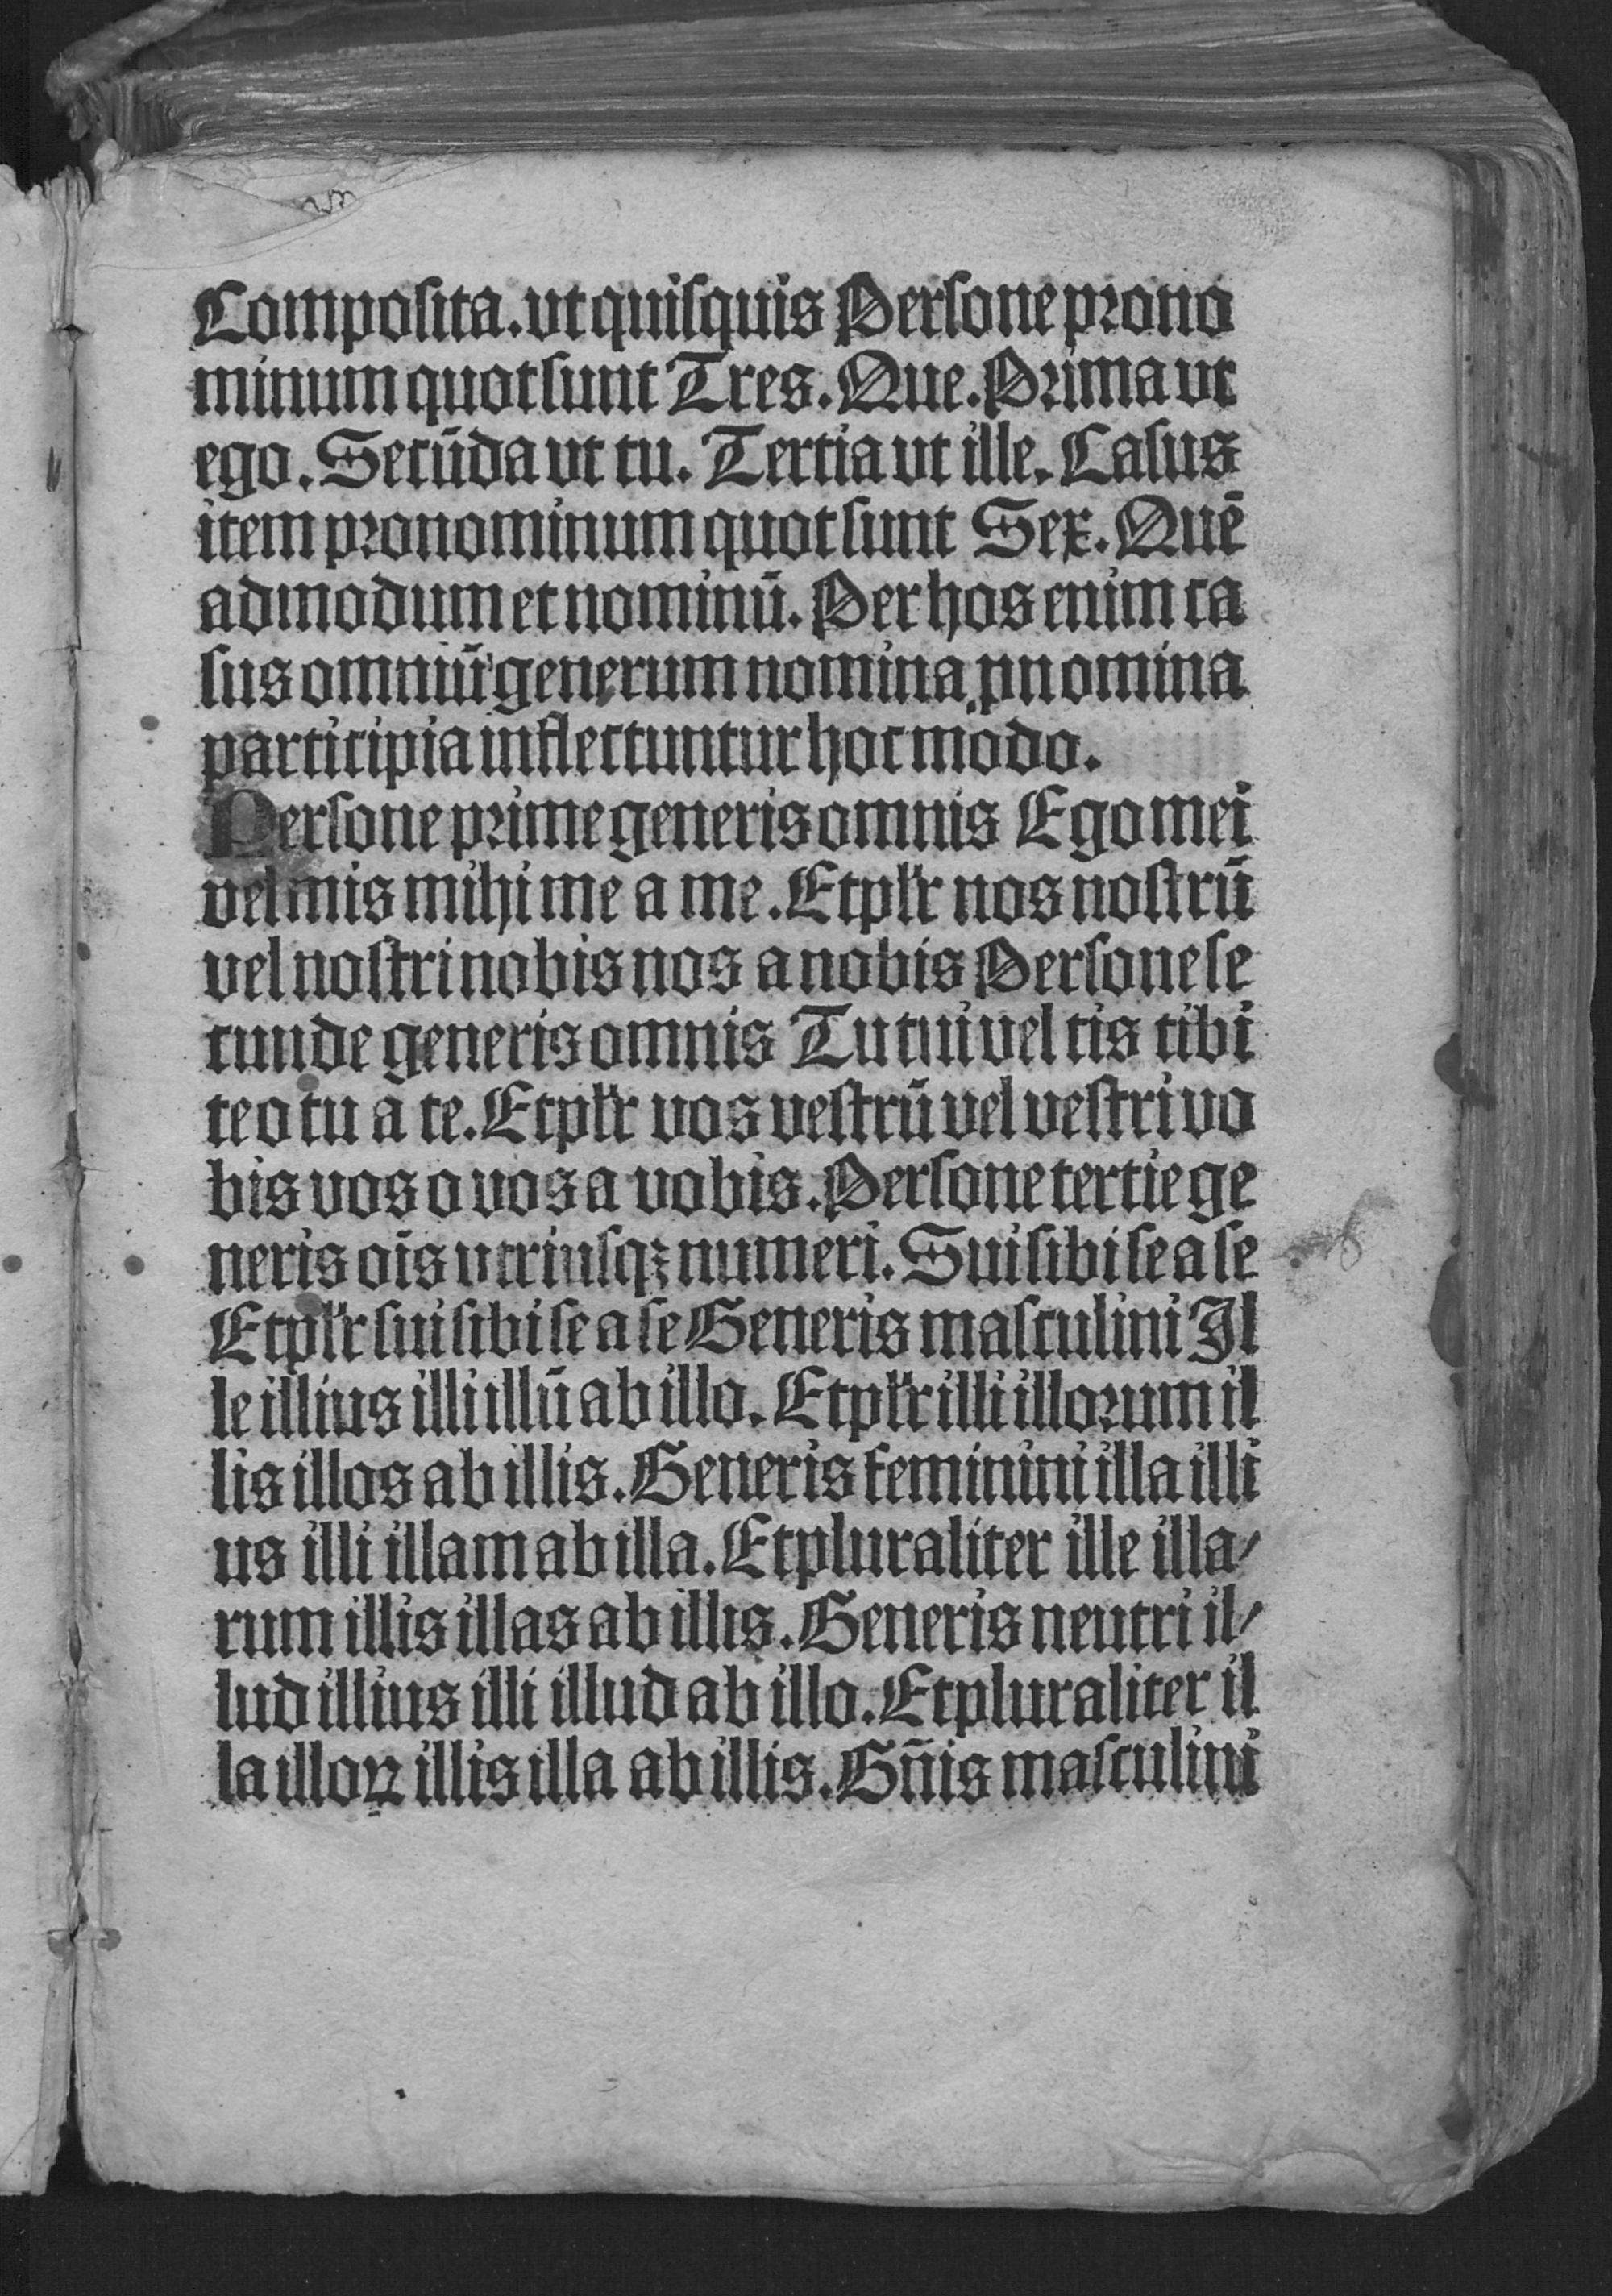 Composita. ut quisquis Persone prono
minum quot sunt Tres. Que. Prima ut
ego. Secūda ut tu. Tertia ut ille. Casus
item pronominum quot sunt Sex. Quē
admodum et nominū. Per hos enim ca
sus omniū generum nomina ꝓnomina
participia inflectuntur hoc modo.
Persone prime generis omnis Ego mei
vel mis mihi me a me. Et plr̄ nos nostrū
vel nostri nobis nos a nobis Persone se
cunde generis omnis Tu tui vel tis tibi
te o tu a te. Et plr̄ vos vestrū vel vestri vo
bis vos o vos a vobis. Persone tertie ge
neris oīs utriusqꝫ numeri. Sui sibi se a se
Et plr̄ sui sibi se a se Generis masculini Il
le illius illi illū ab illo. Et plr̄ illi illorum il
lis illos ab illis. Generis feminini illa illi
us illi illam ab illa. Et pluraliter ille illa/
rum illis illas ab illis. Generis neutri il/
lud illius illi illud ab illo. Et pluraliter il
la illoꝝ illis illa ab illis. Gn̄is masculini